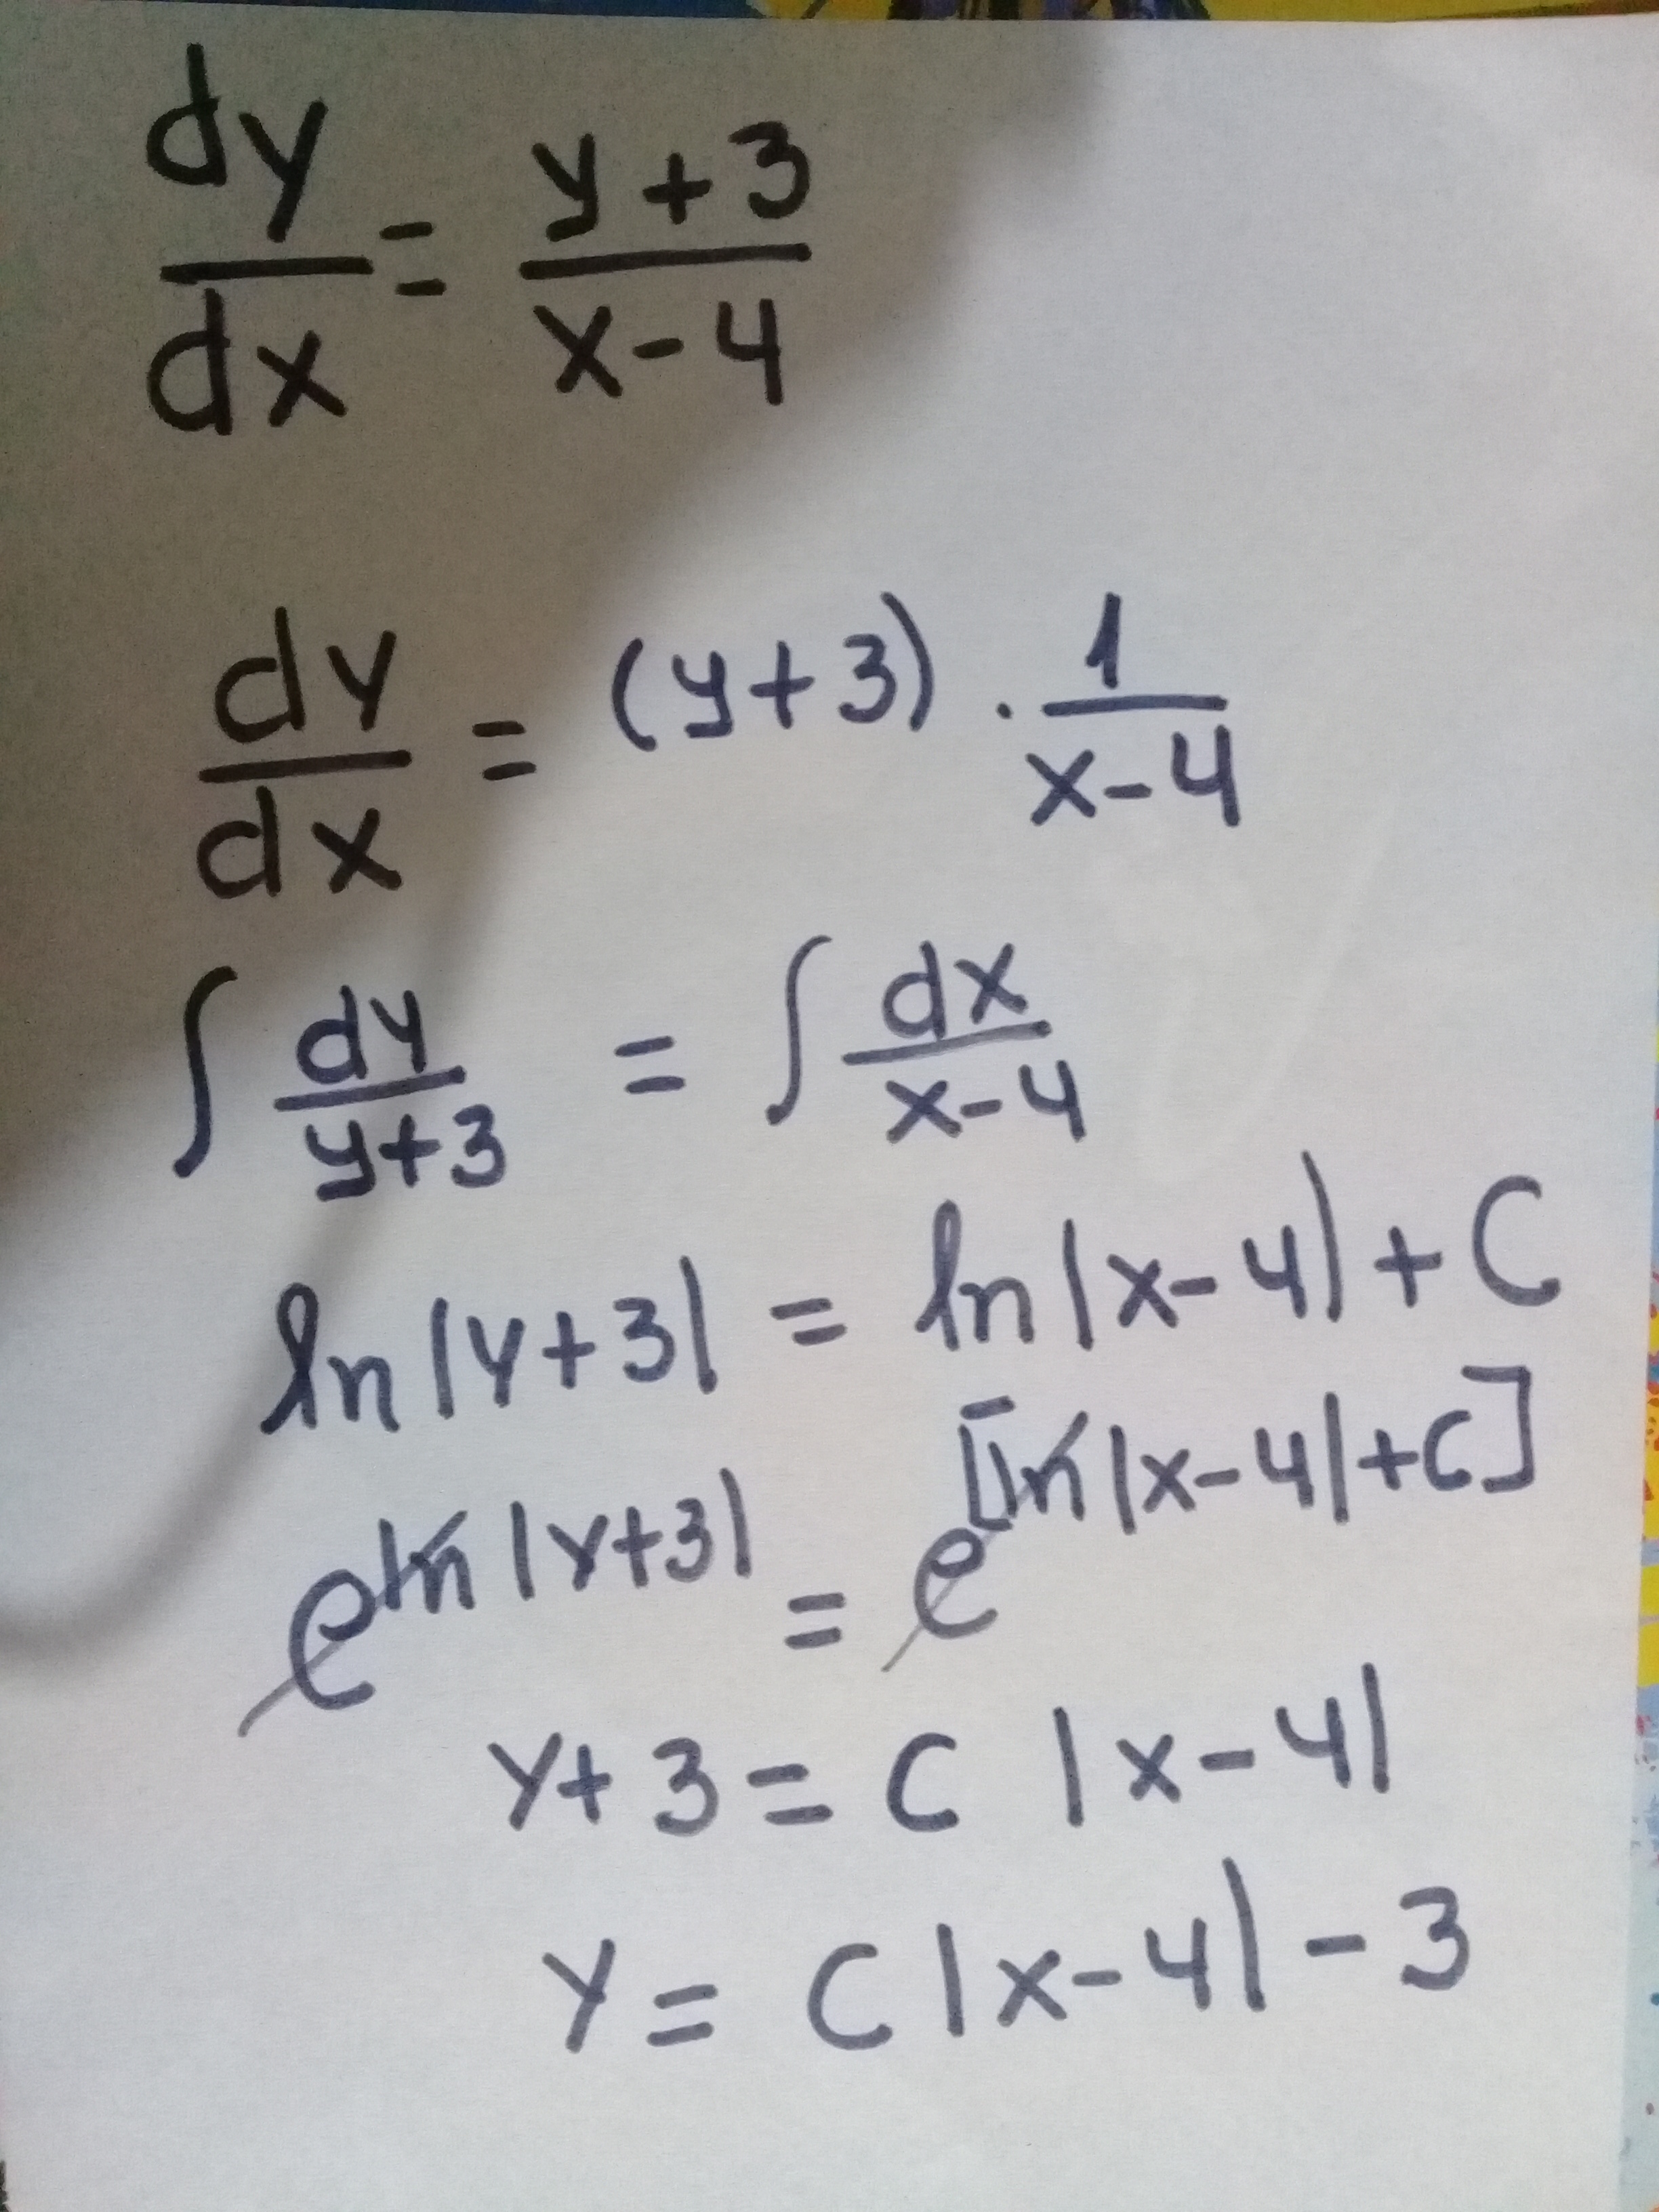 dy/dx = (y+3)/(x-4)
dy/dx = (y+3) · 1/(x-4)
∫ dy/(y+3) = ∫ dx/(x-4)
ln|y+3| = ln|x-4| + C
e^(ln|y+3|) = e^[ln|x-4|+C]
y+3 = C |x-4|
y = C|x-4| - 3